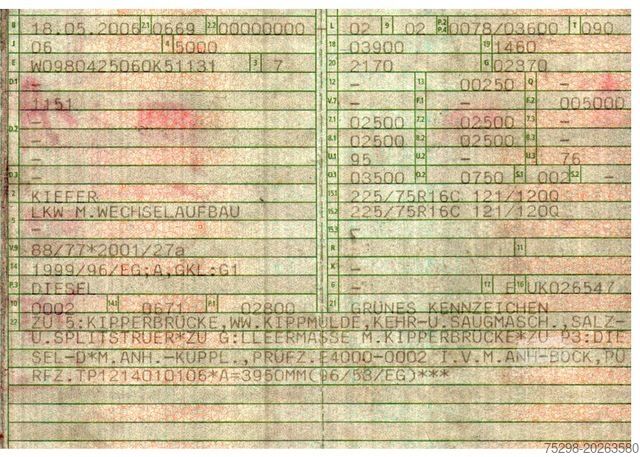 B 18.05.2006 2.1 0669 2.2 00000000
J 06 4 5000
E W0980425060K51131 3 7
D.1 -
1151
D.2 -
-
-
D.3 -
2 KIEFER
5 LKW M.WECHSELAUFBAU
-
V.9 88/77*2001/27a
14 1999/96/EG;A,GKL:G1
P.3 DIESEL
10 0002 14.1 0671 P.1 02800
L 02 9 02 P.2 P.4 0078/03600 T 090
18 03900 19 1460
20 2170 G 02370
12 - 13 00250 Q -
V.7 - F.1 - F.2 005000
7.1 02500 7.2 02500 7.3 -
8.1 02500 8.2 02500 8.3 -
U.1 95 U.2 - U.3 76
O.1 03500 O.2 0750 S.1 002 S.2 -
15.1 225/75R16C 121/120Q
15.2 225/75R16C 121/120Q
15.3 -
R - 11
K -
6 - 17 E 16 UK026547
21 GRÜNES KENNZEICHEN
22 ZU 5:KIPPERBRÜCKE,WW.KIPPMULDE,KEHR-U.SAUGMASCH.,SALZ-
U.SPLITSTRUER*ZU G:LLEERMASSE M.KIPPERBRÜCKE*ZU P3:DIE
SEL-D*M.ANH.-KUPPL.,PRÜFZ.E4000-0002 I.V.M.ANH-BOCK,PÜ
RFZ.TP1214010106*A=3950MM(96/53/EG)***
75298-20263580